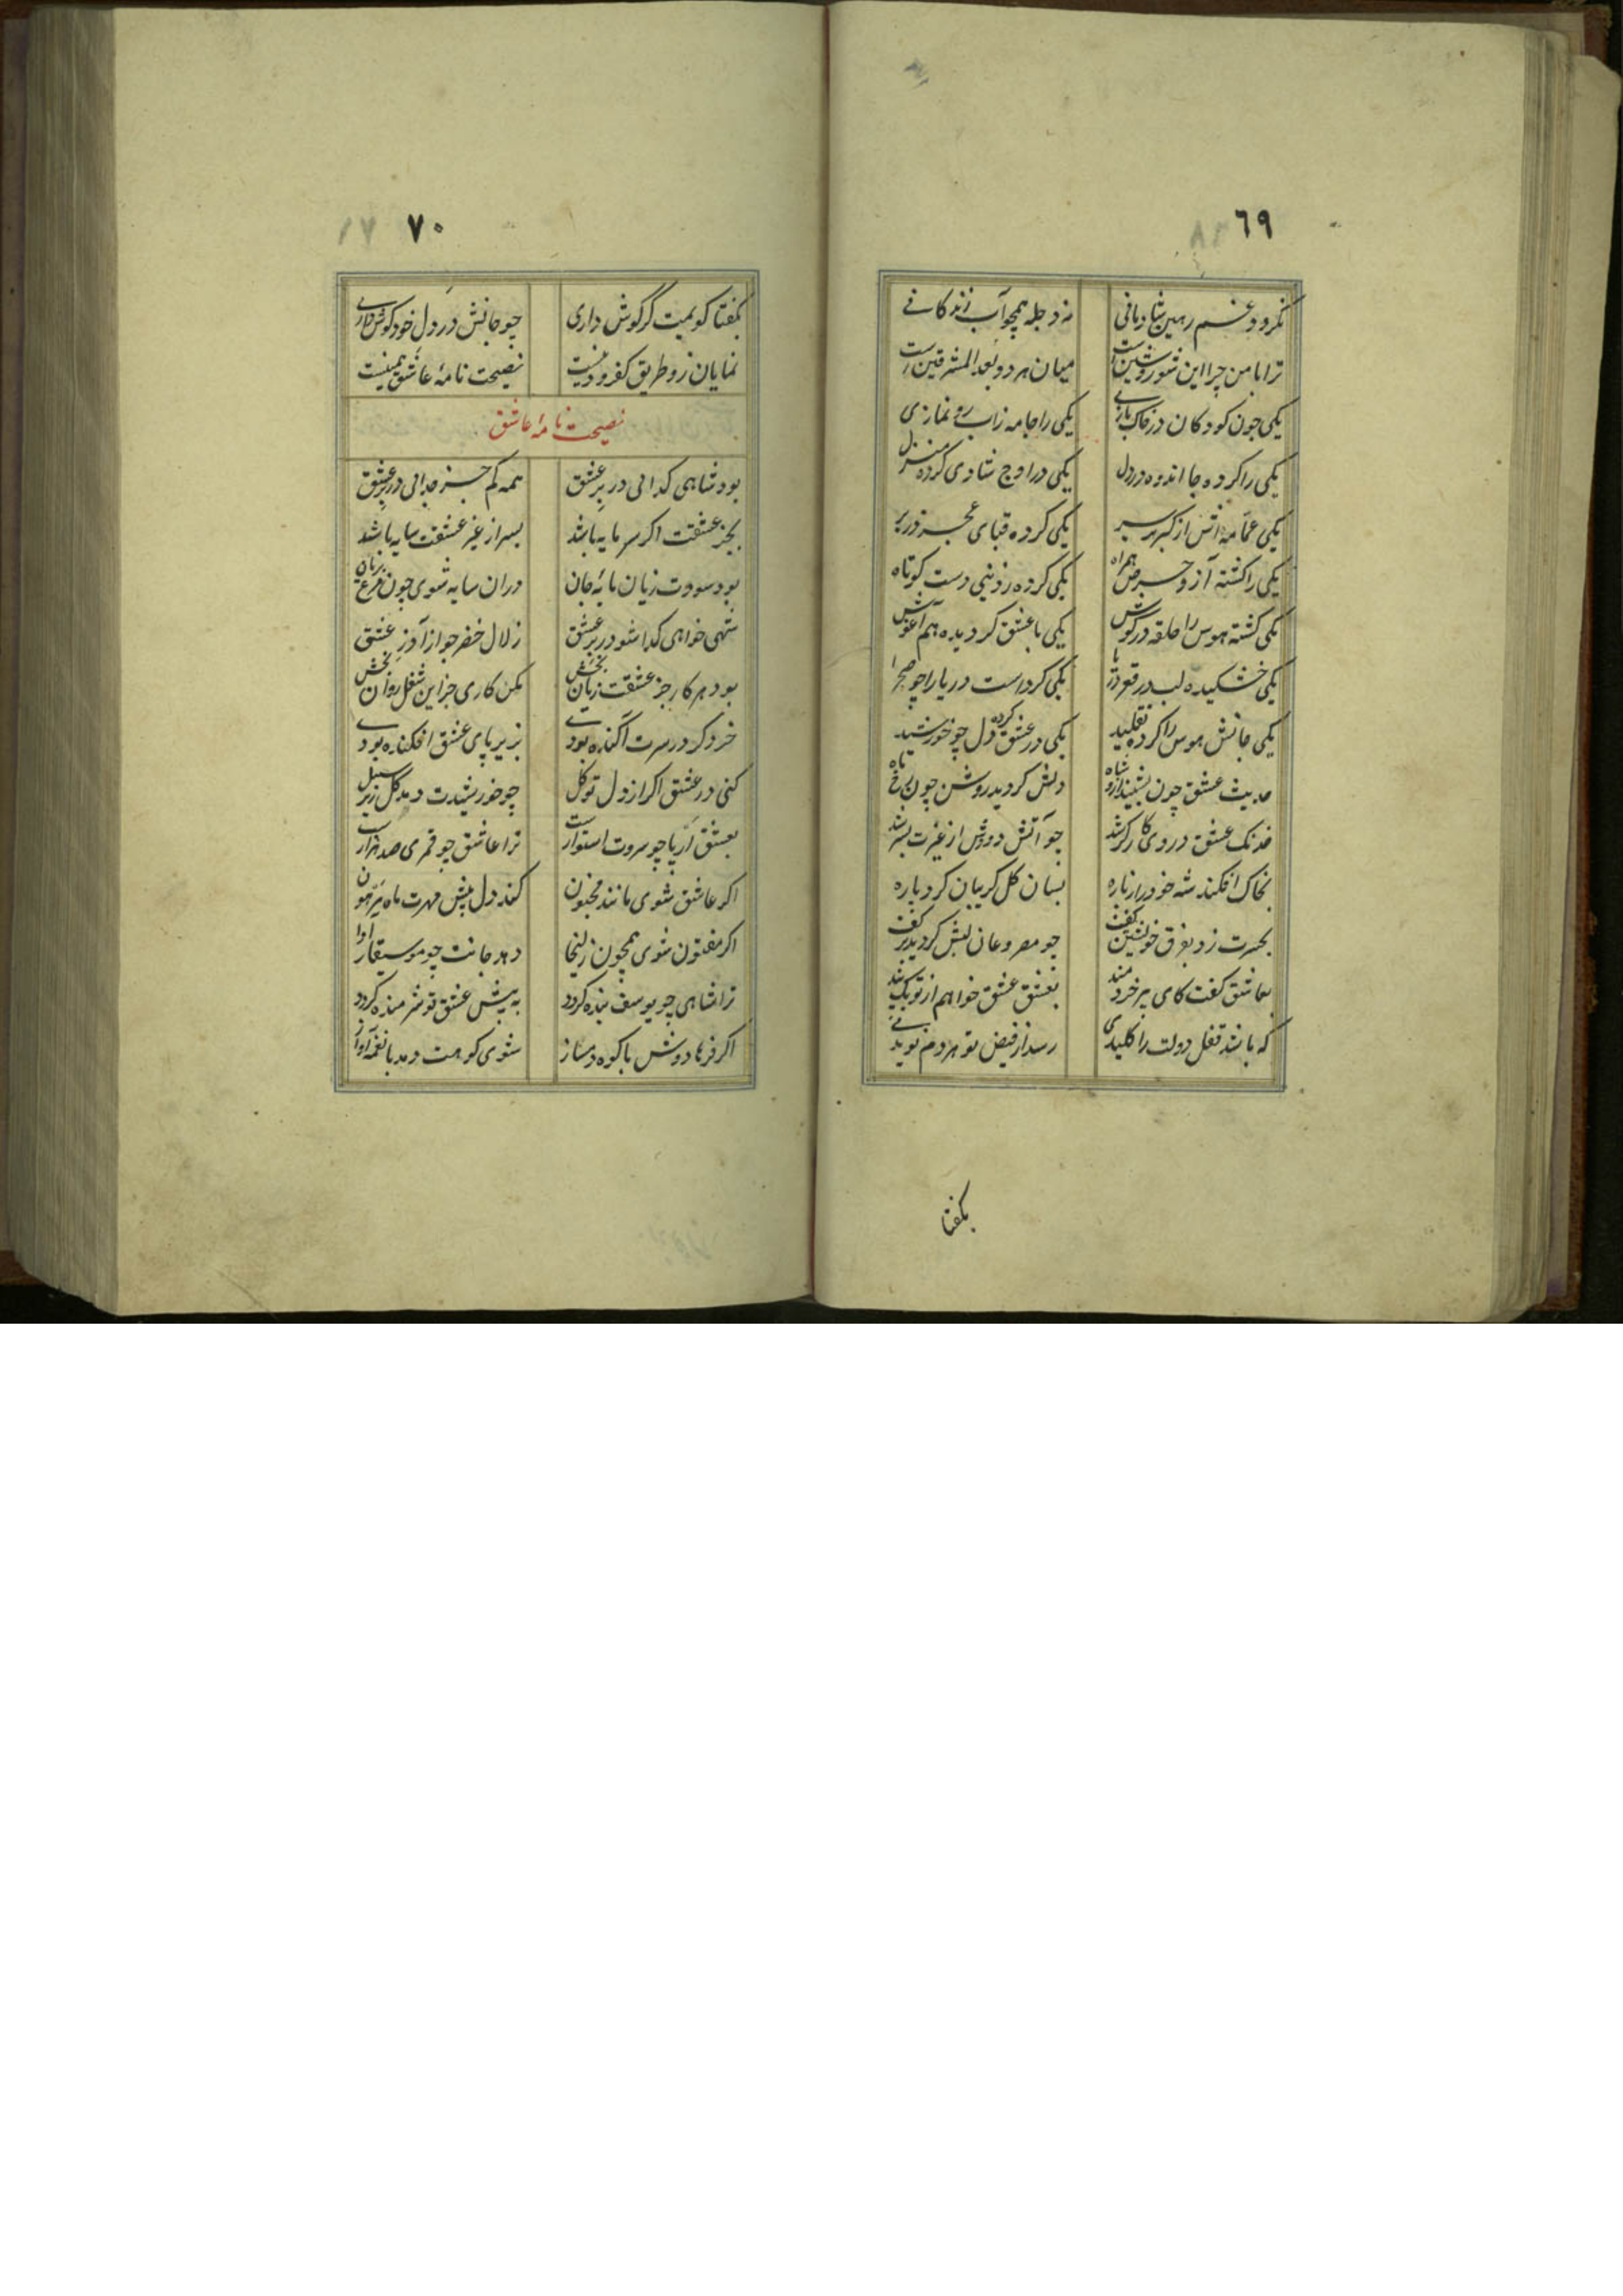 ٦٩
نکردد غم رهین شادمانی نه دجله همچو آب زندکانے
ترا با من چرا این شور و شین است میان هر دو بعد المشرقین است
یکی چون کودکان در خاک بازے یکی را جامه زاب رو نمازی
یکی را کرده جا اندوه در دل یکی در اوج شادی کرده منزل
یکی عمامه اش از کبر بر سر یکی کرده قبای عجز در بر
یکی را کشته آز و حرص همراه یکی کرده ز دنیی دست کوتاه
یکی کشته هوس را حلقه در کوش یکی با عشق کردیده هم آغوش
یکی خشکیده لب در قعر دریا یکی کرداست دریا را چو صحرا
یکی جانش هوس را کرده تقلید یکی در عشق کرده دل چو خورشید
حدیث عشق چون بشنید ازو شاه دلش کردید روشن چون رخ ماه
خدنک عشق در وی کارکر شد چو آتش دودش از غیرت بسر شد
بخاک افکند شه خود را ز باره بسان کل کریبان کرد پاره
بحسرت زد بفرق خویشتن کف چو مصروعان لبش کردید پر کف
بعاشق کفت کای پیر خردمند بعشق عشق خواهم از تو یک پند
که باشد قفل دولت را کلیدی رسد از فیض تو هر دم نویدے
بکفتا
٧٠
بکفتا کویمت گر گوش داری چو جانش در دل خود کوش دارے
نمایان زو طریق کفر و دینست نصیحت نامۀ عاشق همینست
نصیحت نامۀ عاشق
بود شاهی کدائی در بر عشق همه کم جز جدائی در بر عشق
بجز عشقت اکر سرمایه باشد بسر از غیر عشقت سایه باشد
بود سودت زیان مایۀ جان دران سایه شوی چون مرغ بریان
شهی خواهی کدا شو در بر عشق زلال خضر جو از آذر عشق
بود هر کار جز عشقت زیان بخش مکن کاری جز این شغل روان بخش
خرد کر در سرت آکنده بودے بزیر پای عشق افکنده بودے
کنی در عشق اکر از دل توکل چو خورشیدت دمد کل زیر سنبل
بعشق ار پا چو سروت استوارست ترا عاشق چو قمری صد هزارست
اکر عاشق شوی مانند مجنون کند دل پیش مهرت ماه پرخون
اکر مفتون شوی همچون زلیخا دهد جانت چو موسیقار آوا
ترا شاهی چو یوسف بنده کردد به پیش عشق تو شرمنده کردد
اکر فرهادوش با کوه دمساز شوی کوهت دهد با نغمه آواز